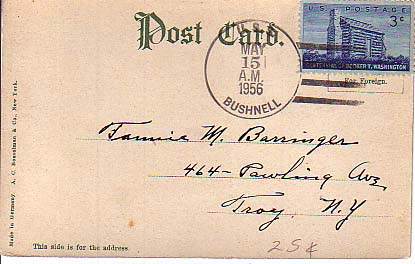 Post Card.
U.S.S.
MAY
15
A.M.
1956
BUSHNELL
U.S. POSTAGE
3c
CENTENNIAL OF BOOKER T. WASHINGTON
For Foreign.
Fannie M. Barringer
464 - Pawling Ave,
Troy, N.Y
25¢
This side is for the address.
Made in Germany A. C. Bosselman & Co., New York.